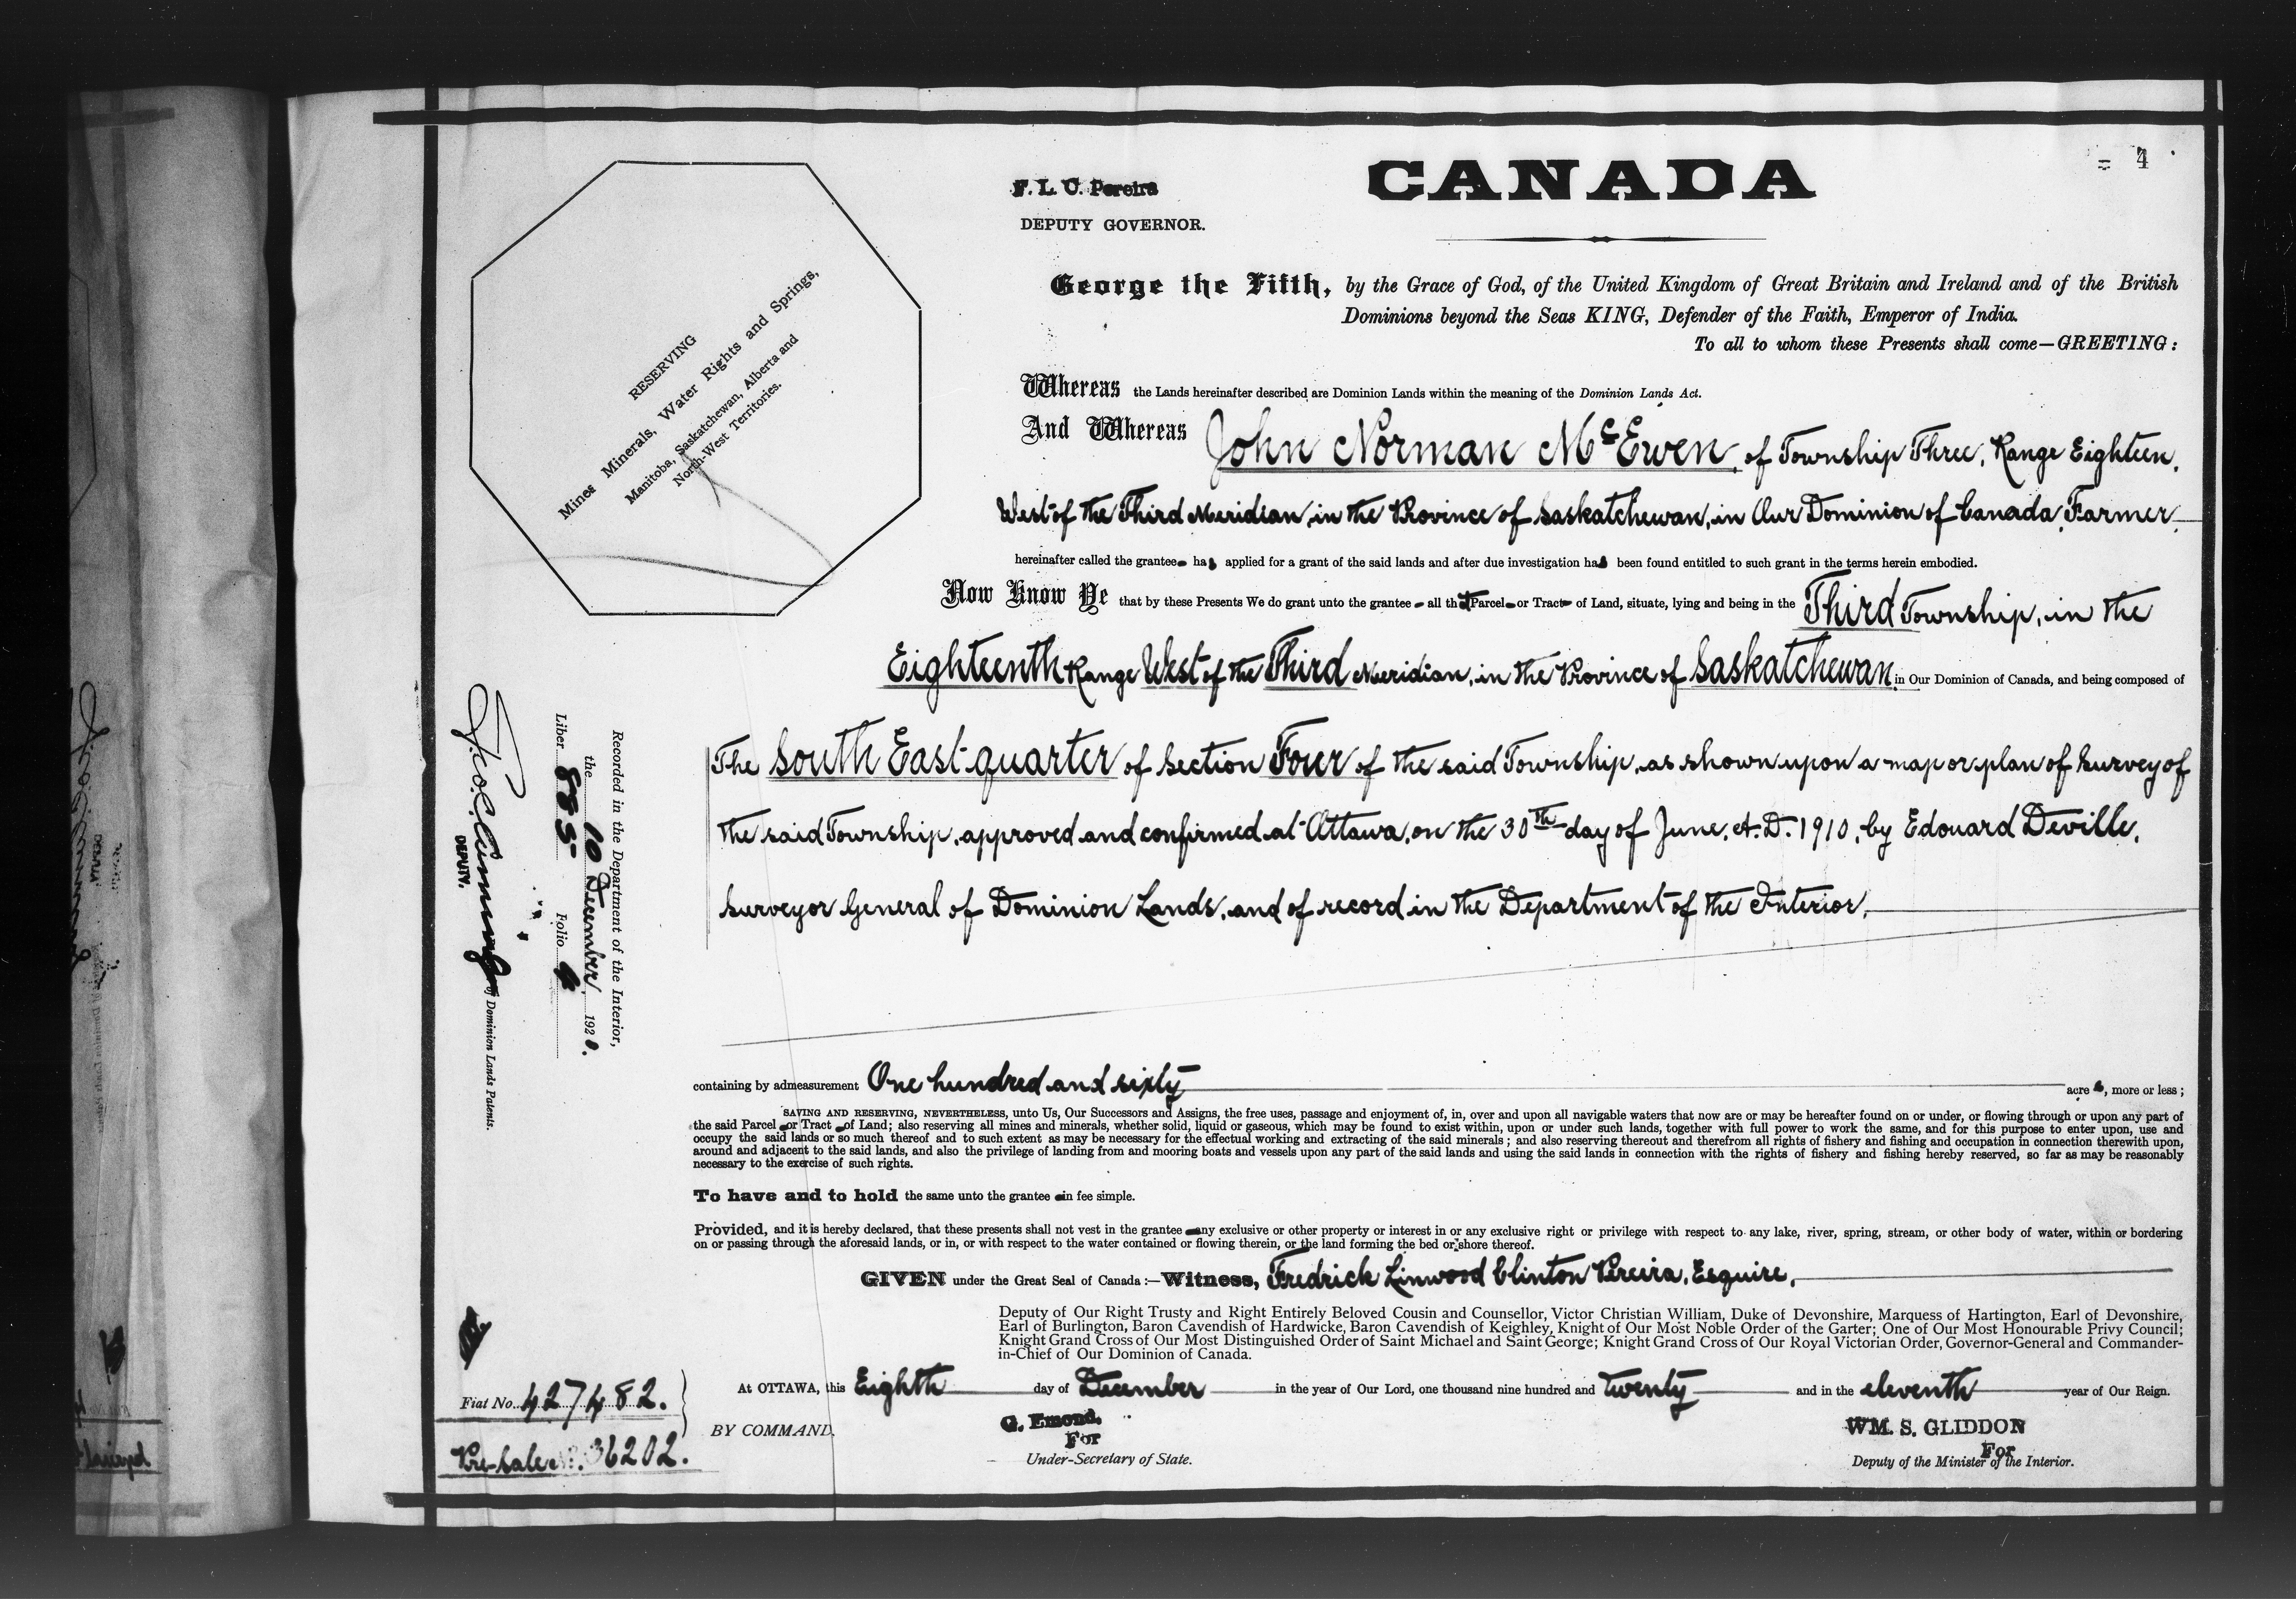 = 4
CANADA
F. L. C. Pereira
DEPUTY GOVERNOR.
George the Fifth, by the Grace of God, of the United Kingdom of Great Britain and Ireland and of the British
Dominions beyond the Seas KING, Defender of the Faith, Emperor of India.
To all to whom these Presents shall come—GREETING:
RESERVING
Mines Minerals, Water Rights and Springs,
Manitoba, Saskatchewan, Alberta and
North-West Territories.
Whereas the Lands hereinafter described are Dominion Lands within the meaning of the Dominion Lands Act.
And Whereas John Norman McEwen, of Township Three, Range Eighteen,
West of the Third Meridian, in the Province of Saskatchewan, in Our Dominion of Canada, Farmer,
hereinafter called the grantee has applied for a grant of the said lands and after due investigation has been found entitled to such grant in the terms herein embodied.
Now Know Ye that by these Presents We do grant unto the grantee all that Parcel or Tract of Land, situate, lying and being in the Third Township, in the
Eighteenth Range West of the Third Meridian, in the Province of Saskatchewan, in Our Dominion of Canada, and being composed of
The South East quarter of Section Four of the said Township, as shown upon a map or plan of Survey of
the said Township, approved and confirmed at Ottawa, on the 30th day of June, A.D. 1910, by Edouard Deville,
Surveyor General of Dominion Lands, and of record in the Department of the Interior,
Recorded in the Department of the Interior,
the 10 December 1920.
Liber 885 Folio 4
DEPUTY.
of Dominion Lands Patents.
containing by admeasurement One hundred and sixty acres, more or less;
SAVING AND RESERVING, NEVERTHELESS, unto Us, Our Successors and Assigns, the free uses, passage and enjoyment of, in, over and upon all navigable waters that now are or may be hereafter found on or under, or flowing through or upon any part of
the said Parcel or Tract of Land; also reserving all mines and minerals, whether solid, liquid or gaseous, which may be found to exist within, upon or under such lands, together with full power to work the same, and for this purpose to enter upon, use and
occupy the said lands or so much thereof and to such extent as may be necessary for the effectual working and extracting of the said minerals; and also reserving thereout and therefrom all rights of fishery and fishing and occupation in connection therewith upon,
around and adjacent to the said lands, and also the privilege of landing from and mooring boats and vessels upon any part of the said lands and using the said lands in connection with the rights of fishery and fishing hereby reserved, so far as may be reasonably
necessary to the exercise of such rights.
To have and to hold the same unto the grantee in fee simple.
Provided, and it is hereby declared, that these presents shall not vest in the grantee any exclusive or other property or interest in or any exclusive right or privilege with respect to any lake, river, spring, stream, or other body of water, within or bordering
on or passing through the aforesaid lands, or in, or with respect to the water contained or flowing therein, or the land forming the bed or shore thereof.
GIVEN under the Great Seal of Canada:—Witness, Fredrick Linwood Clinton Pereira, Esquire,
Deputy of Our Right Trusty and Right Entirely Beloved Cousin and Counsellor, Victor Christian William, Duke of Devonshire, Marquess of Hartington, Earl of Devonshire,
Earl of Burlington, Baron Cavendish of Hardwicke, Baron Cavendish of Keighley, Knight of Our Most Noble Order of the Garter; One of Our Most Honourable Privy Council;
Knight Grand Cross of Our Most Distinguished Order of Saint Michael and Saint George; Knight Grand Cross of Our Royal Victorian Order, Governor-General and Commander-
in-Chief of Our Dominion of Canada.
At OTTAWA, this Eighth day of December in the year of Our Lord, one thousand nine hundred and twenty and in the eleventh year of Our Reign.
Fiat No. 427482.
BY COMMAND,
G. Emond,
For
Under-Secretary of State.
WM. S. GLIDDON
For
Deputy of the Minister of the Interior.
Pre-Sale 36202.